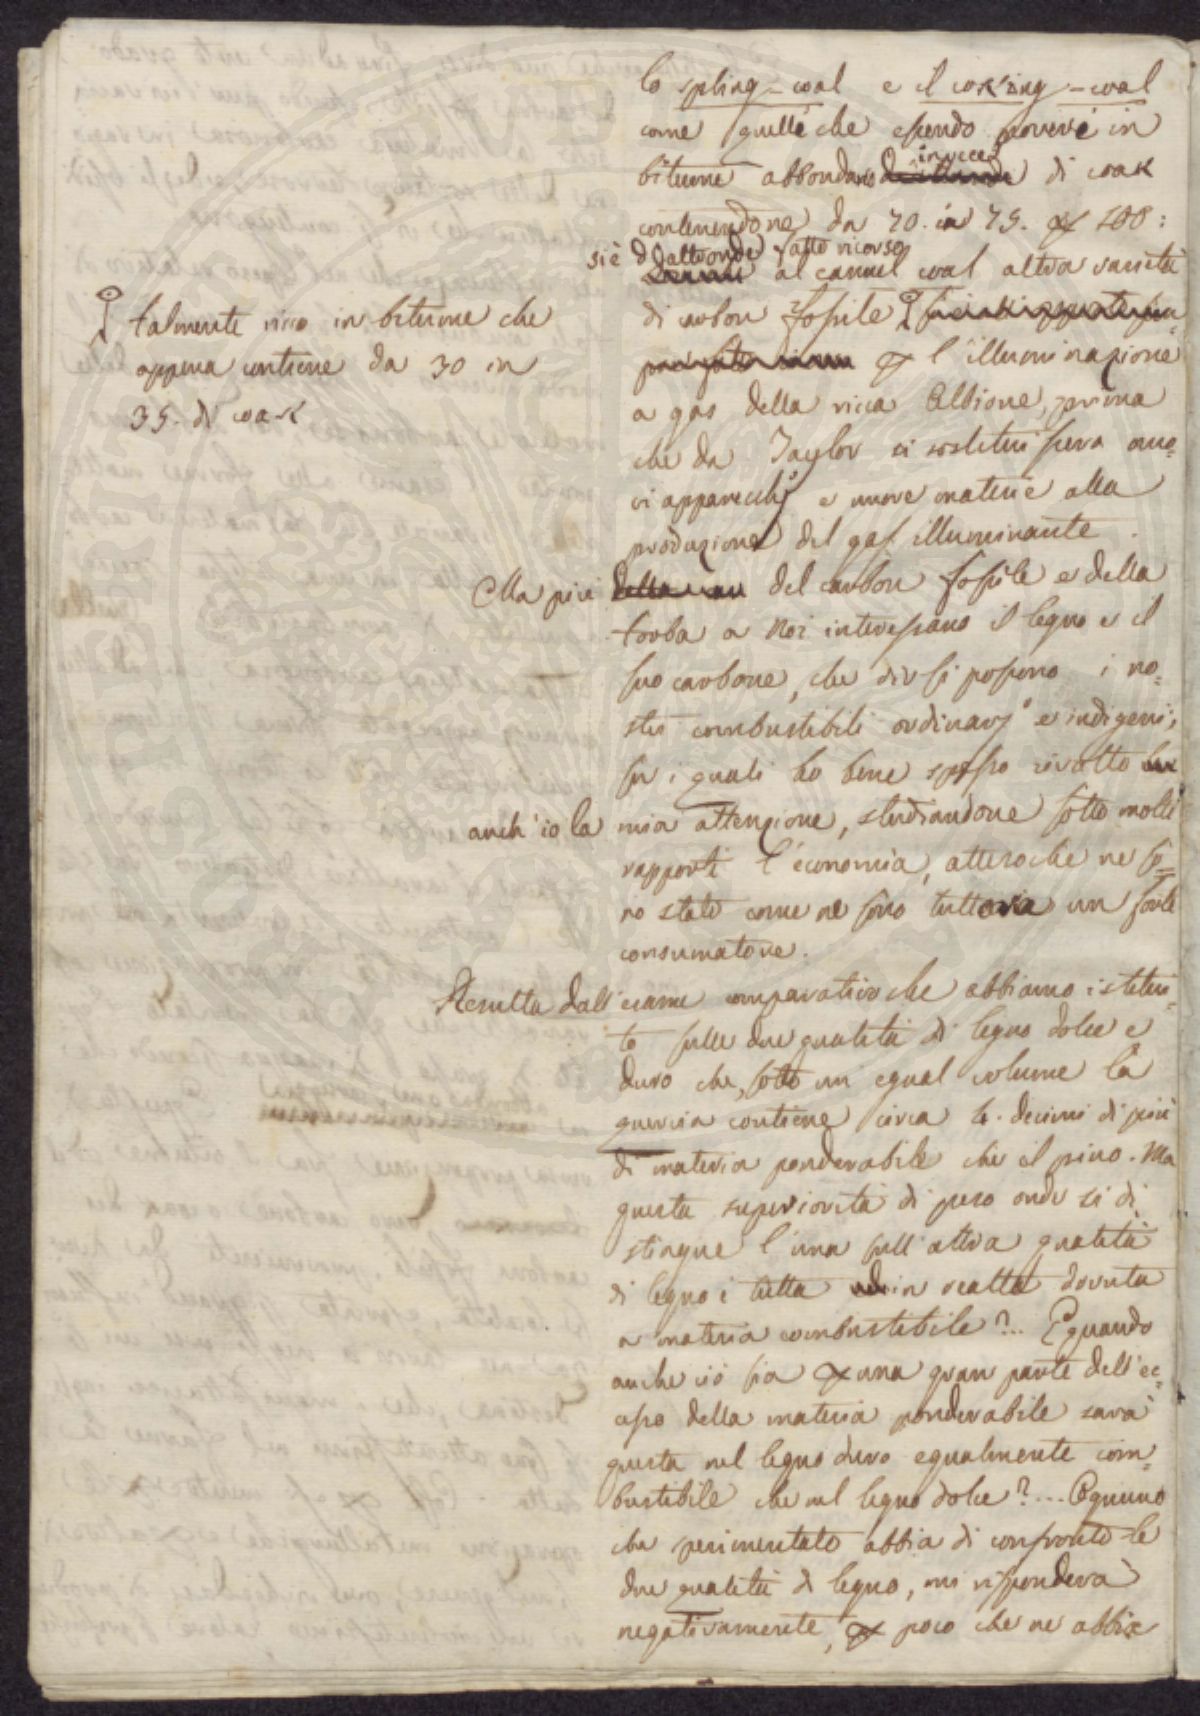 lo spling-coal e il coking-coal
come quelle che essendo povere in
bitume abbondano invece di coak
contenendone da 70. in 75. per 100:
si è d'altronde fatto ricorso
al cannel coal altra varietà
di carbon fossile
talmente ricco in bitume che
appena contiene da 30 in
35. di coak
per l'illuminazione
a gas della ricca Albione, prima
che da Taylor si sostituissero nuo=
vi apparecchj e nuove materie alla
produzione del gas illuminante.
Ma più del carbon fossile e della
torba a noi interessano il legno e il
suo carbone, che dir si possono i no=
stri combustibili ordinarj e indigeni,
su i quali ho bene spesso rivolto
anch'io la mia attenzione, studiandone sotto molti
rapporti l'economia, attesoché ne so=
no stato come ne sono tuttavia un forte
consumatore.
Resulta dall'esame comparativo che abbiamo istitui=
to sulle due qualità di legno dolce e
duro che, sotto un egual volume la
quercia contiene circa 4. decimi di più
di materia ponderabile che il pino. Ma
questa superiorità di peso onde si di
stingue l'una sull'altra qualità
di legno è tutta in realtà dovuta
a materia combustibile?... E quando
anche ciò sia per una gran parte dell'ec=
cesso della materia ponderabile sarà
questa nel legno duro egualmente com=
bustibile che nel legno dolce?... Ognuno
che sperimentato abbia di confronto le
due qualità di legno, mi risponderà
negativamente, per poco che ne abbia